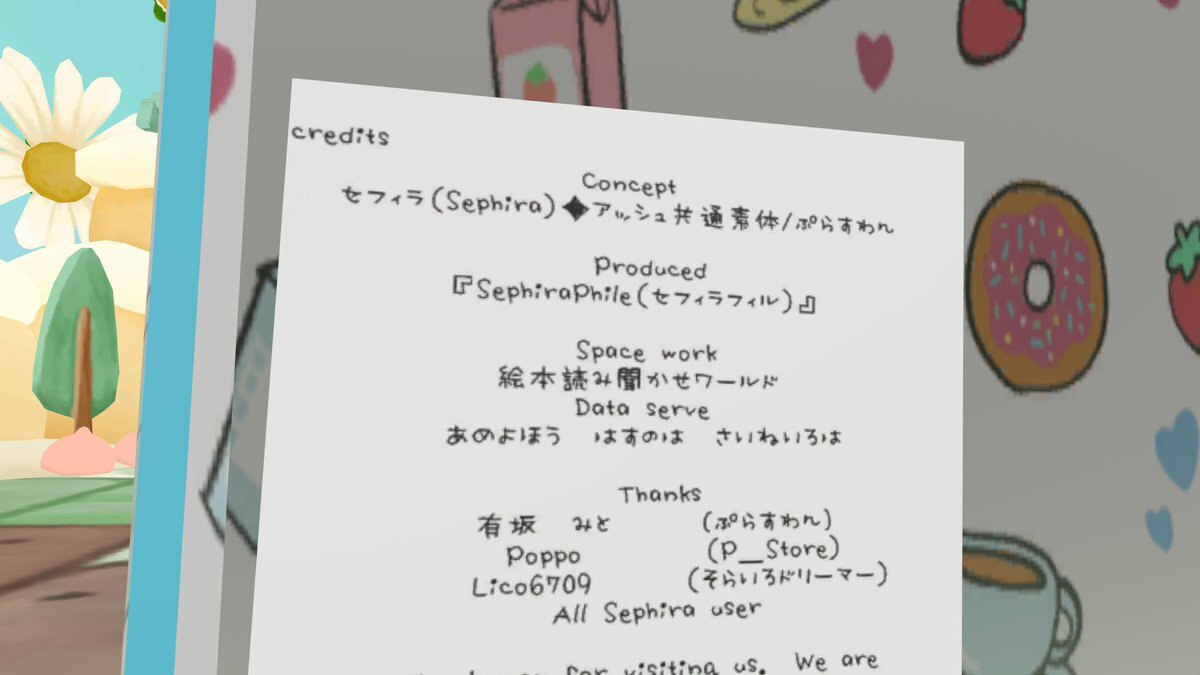 credits
Concept
セフィラ(Sephira)◆アッシュ共通素体/ぷらすわん
Produced
『SephiraPhile(セフィラフィル)』
Space work
絵本読み聞かせワールド
Data serve
あめよほう はすのは さいねいろは
Thanks
有坂 みと (ぷらすわん)
Poppo (P__Store)
Lico6709 (そらいろドリーマー)
All Sephira user
for visiting us. We are